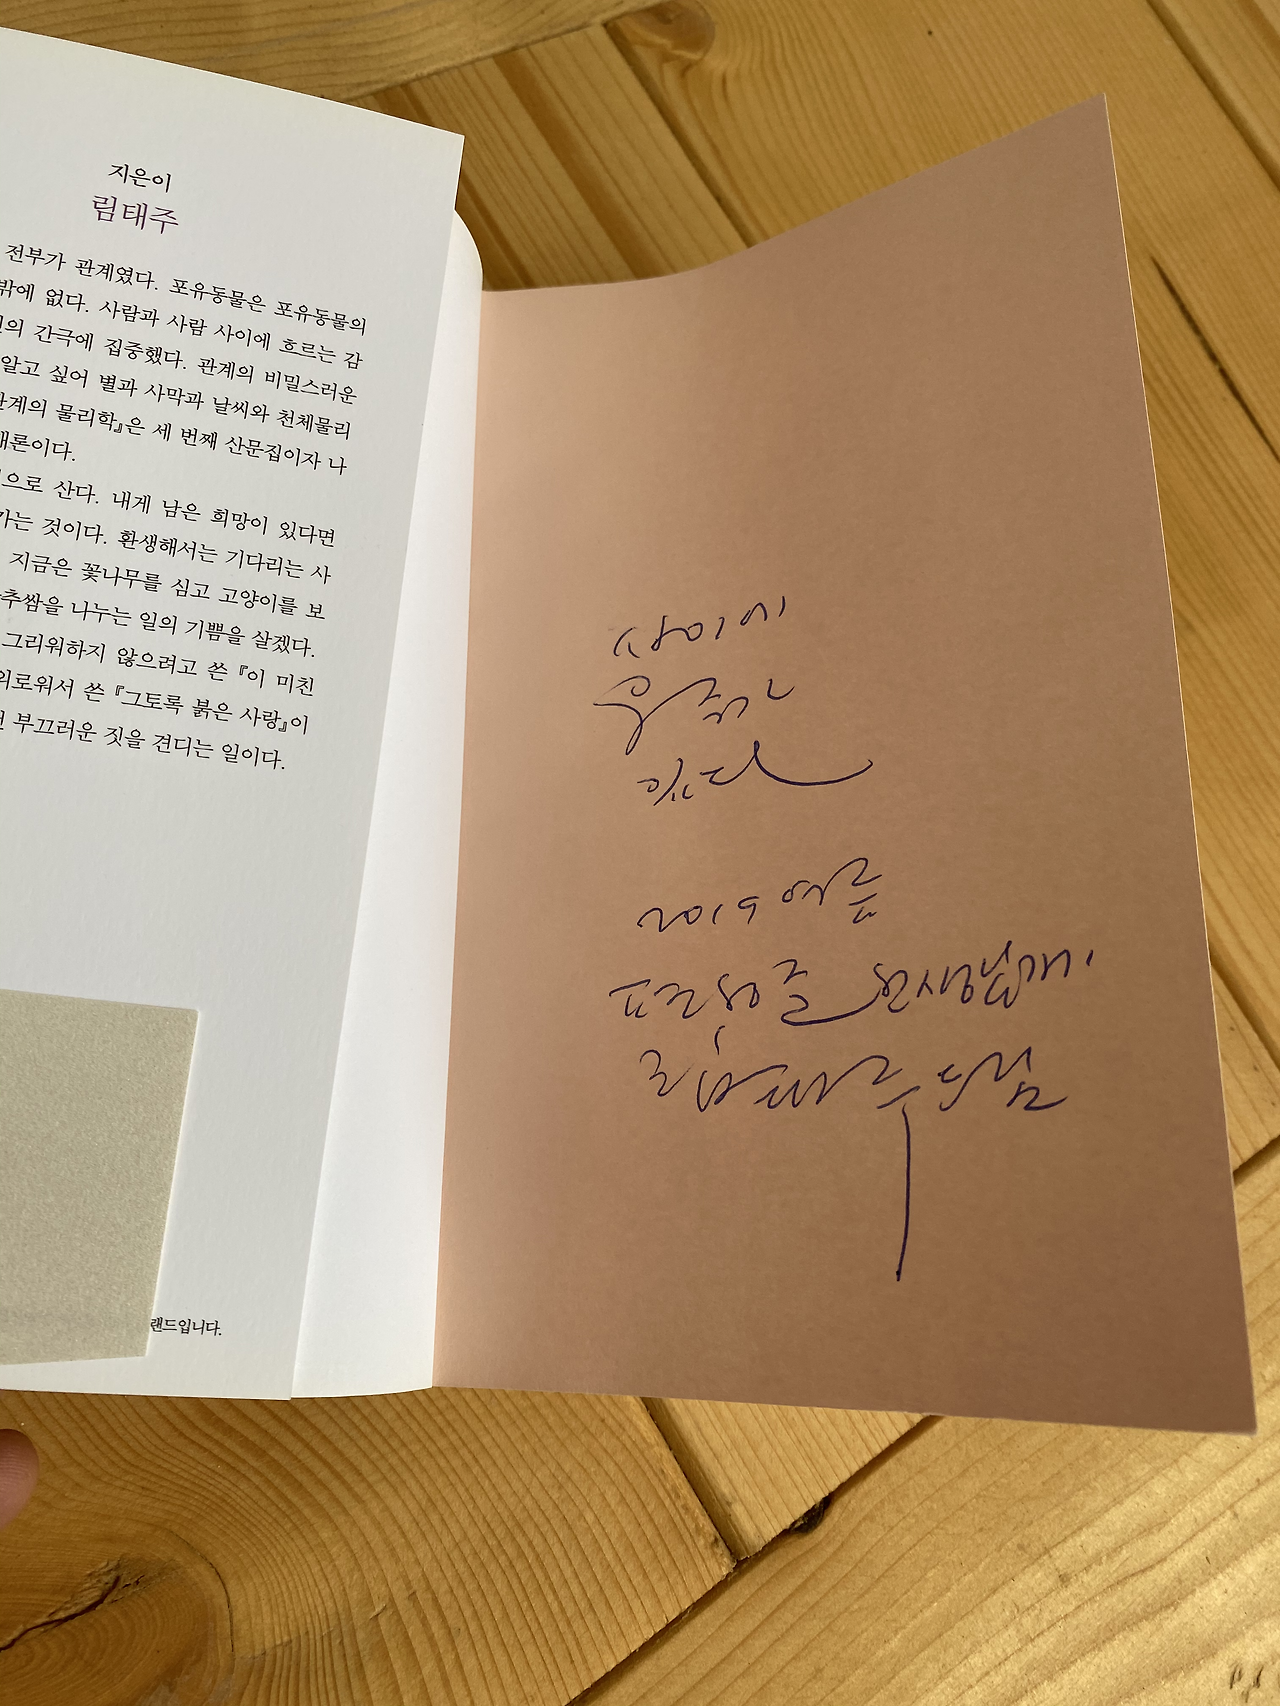 지은이
림태주
전부가 관계였다. 포유동물은 포유동물의
밖에 없다. 사람과 사람 사이에 흐르는 감
의 간극에 집중했다. 관계의 비밀스러운
알고 싶어 별과 사막과 날씨와 천체물리
관계의 물리학』은 세 번째 산문집이자 나
개론이다.
으로 산다. 내게 남은 희망이 있다면
가는 것이다. 환생해서는 기다리는 사
지금은 꽃나무를 심고 고양이를 보
상추쌈을 나누는 일의 기쁨을 살겠다.
그리워하지 않으려고 쓴 『이 미친
외로워서 쓴 『그토록 붉은 사랑』이
부끄러운 짓을 견디는 일이다.
랜드입니다.
사이에
우주가
있다
2019 여름
선생님께
림태주 드림